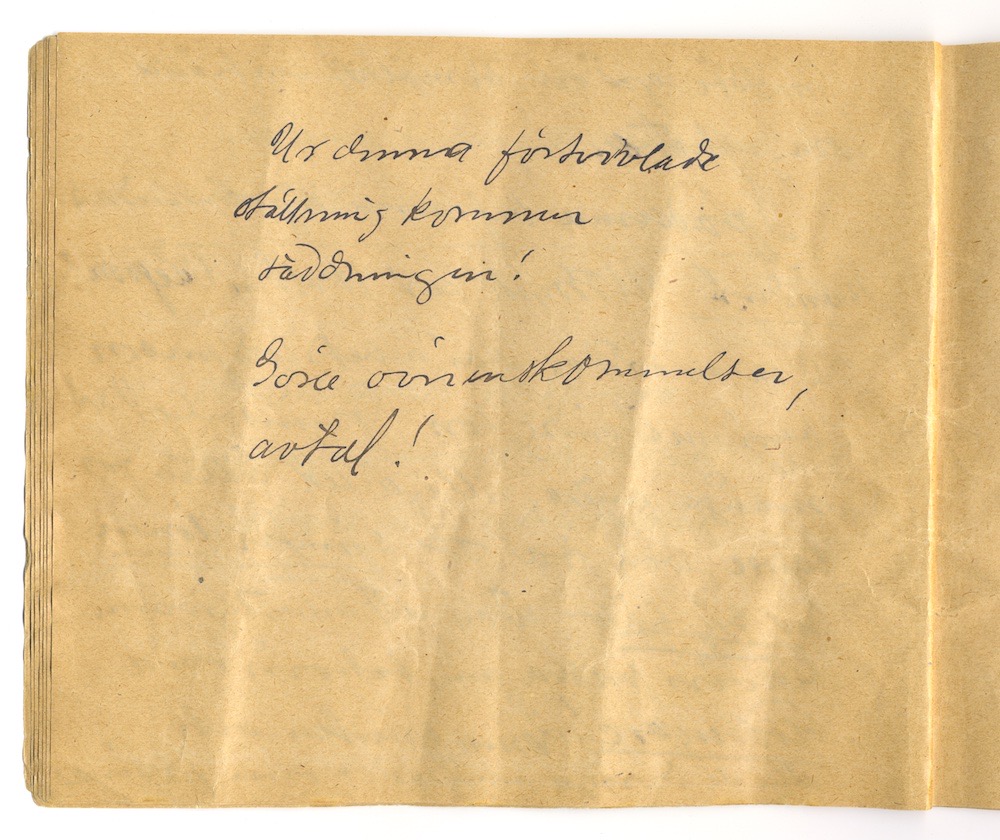 Ur denna förtvivlade
ställning kommer
räddningen!
överenskommelser,
avtal!